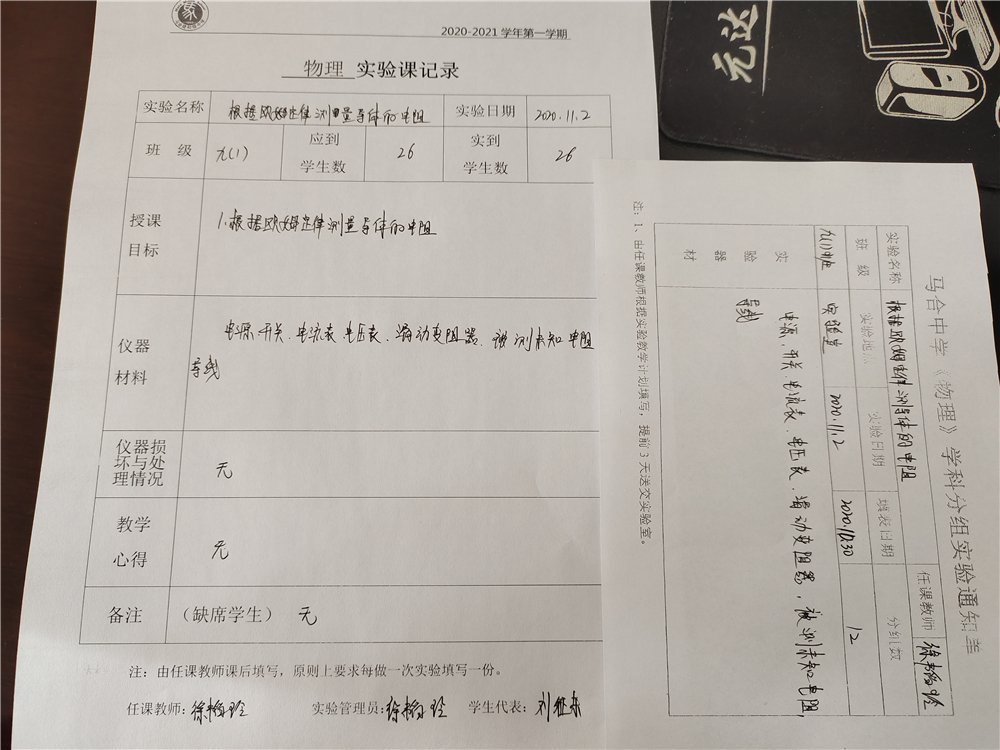 2020-2021 学年第一学期
物理 实验课记录
实验名称 根据欧姆定律测量导体的电阻 实验日期 2020.11.2
班 级 九(1) 应到学生数 26 实到学生数 26
授课目标
1.根据欧姆定律测量导体的电阻
仪器材料
电源 开关、电流表、电压表、滑动变阻器、被测未知电阻
导线
仪器损坏与处理情况 无
教学心得 无
备注 (缺席学生) 无
注:由任课教师课后填写,原则上要求每做一次实验填写一份。
任课教师: 实验管理员: 学生代表:
元达
马合中学《物理》学科分组实验通知单
实验名称 根据欧姆定律测导体的电阻 任课教师
班 级 实验地点 实验日期 填表日期 分组数
九(1)班 实验室 2020.11.2 2020.10.30 12
实验器材
电源、开关、电流表、电压表、滑动变阻器,被测未知电阻,
导线
注:1、由任课教师根据实验教学计划填写,提前3天送交实验室。